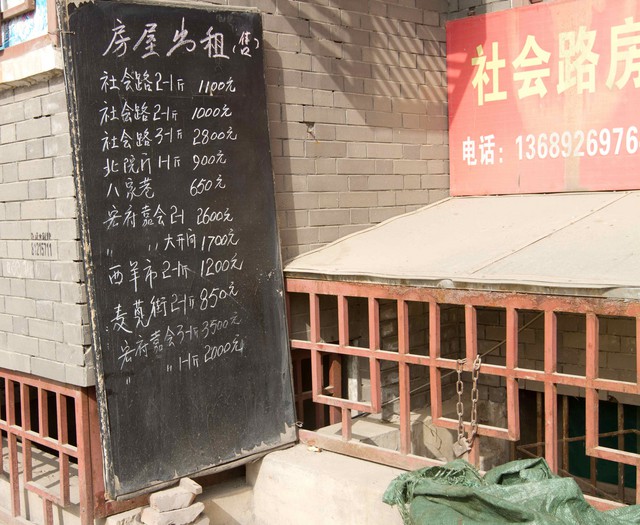 房屋出租(售)
社会路2-1厅 1100元
社会路2-1厅 1000元
社会路3-1厅 2800元
北院门1-1厅 900元
八家巷 650元
宏府嘉会2-1 2600元
〃 〃大开间1700元
西羊市2-1厅 1200元
麦苋街2-1厅 850元
宏府嘉会3-1厅 3500元
〃 〃1-1厅 2000元
社会路房
电话：1368926976